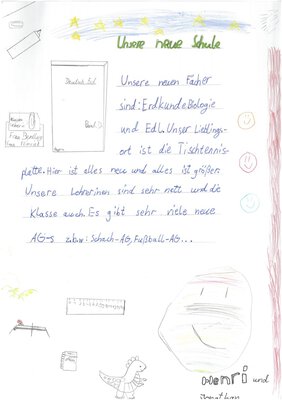 Unsere neue Schule
Deutsch Arb.
Unsere neuen Fächer
sind: Erdkunde Bologie
und Edl. Unser Lieblings-
ort ist die Tischtennis-
platte. Hier ist alles neu und alles ist größer.
Unsere Lehrerinen sind sehr nett und die
Klasse auch. Es gibt sehr viele neue
AG-s zubw: Schach-AG, Fußball-AG...
Henri und